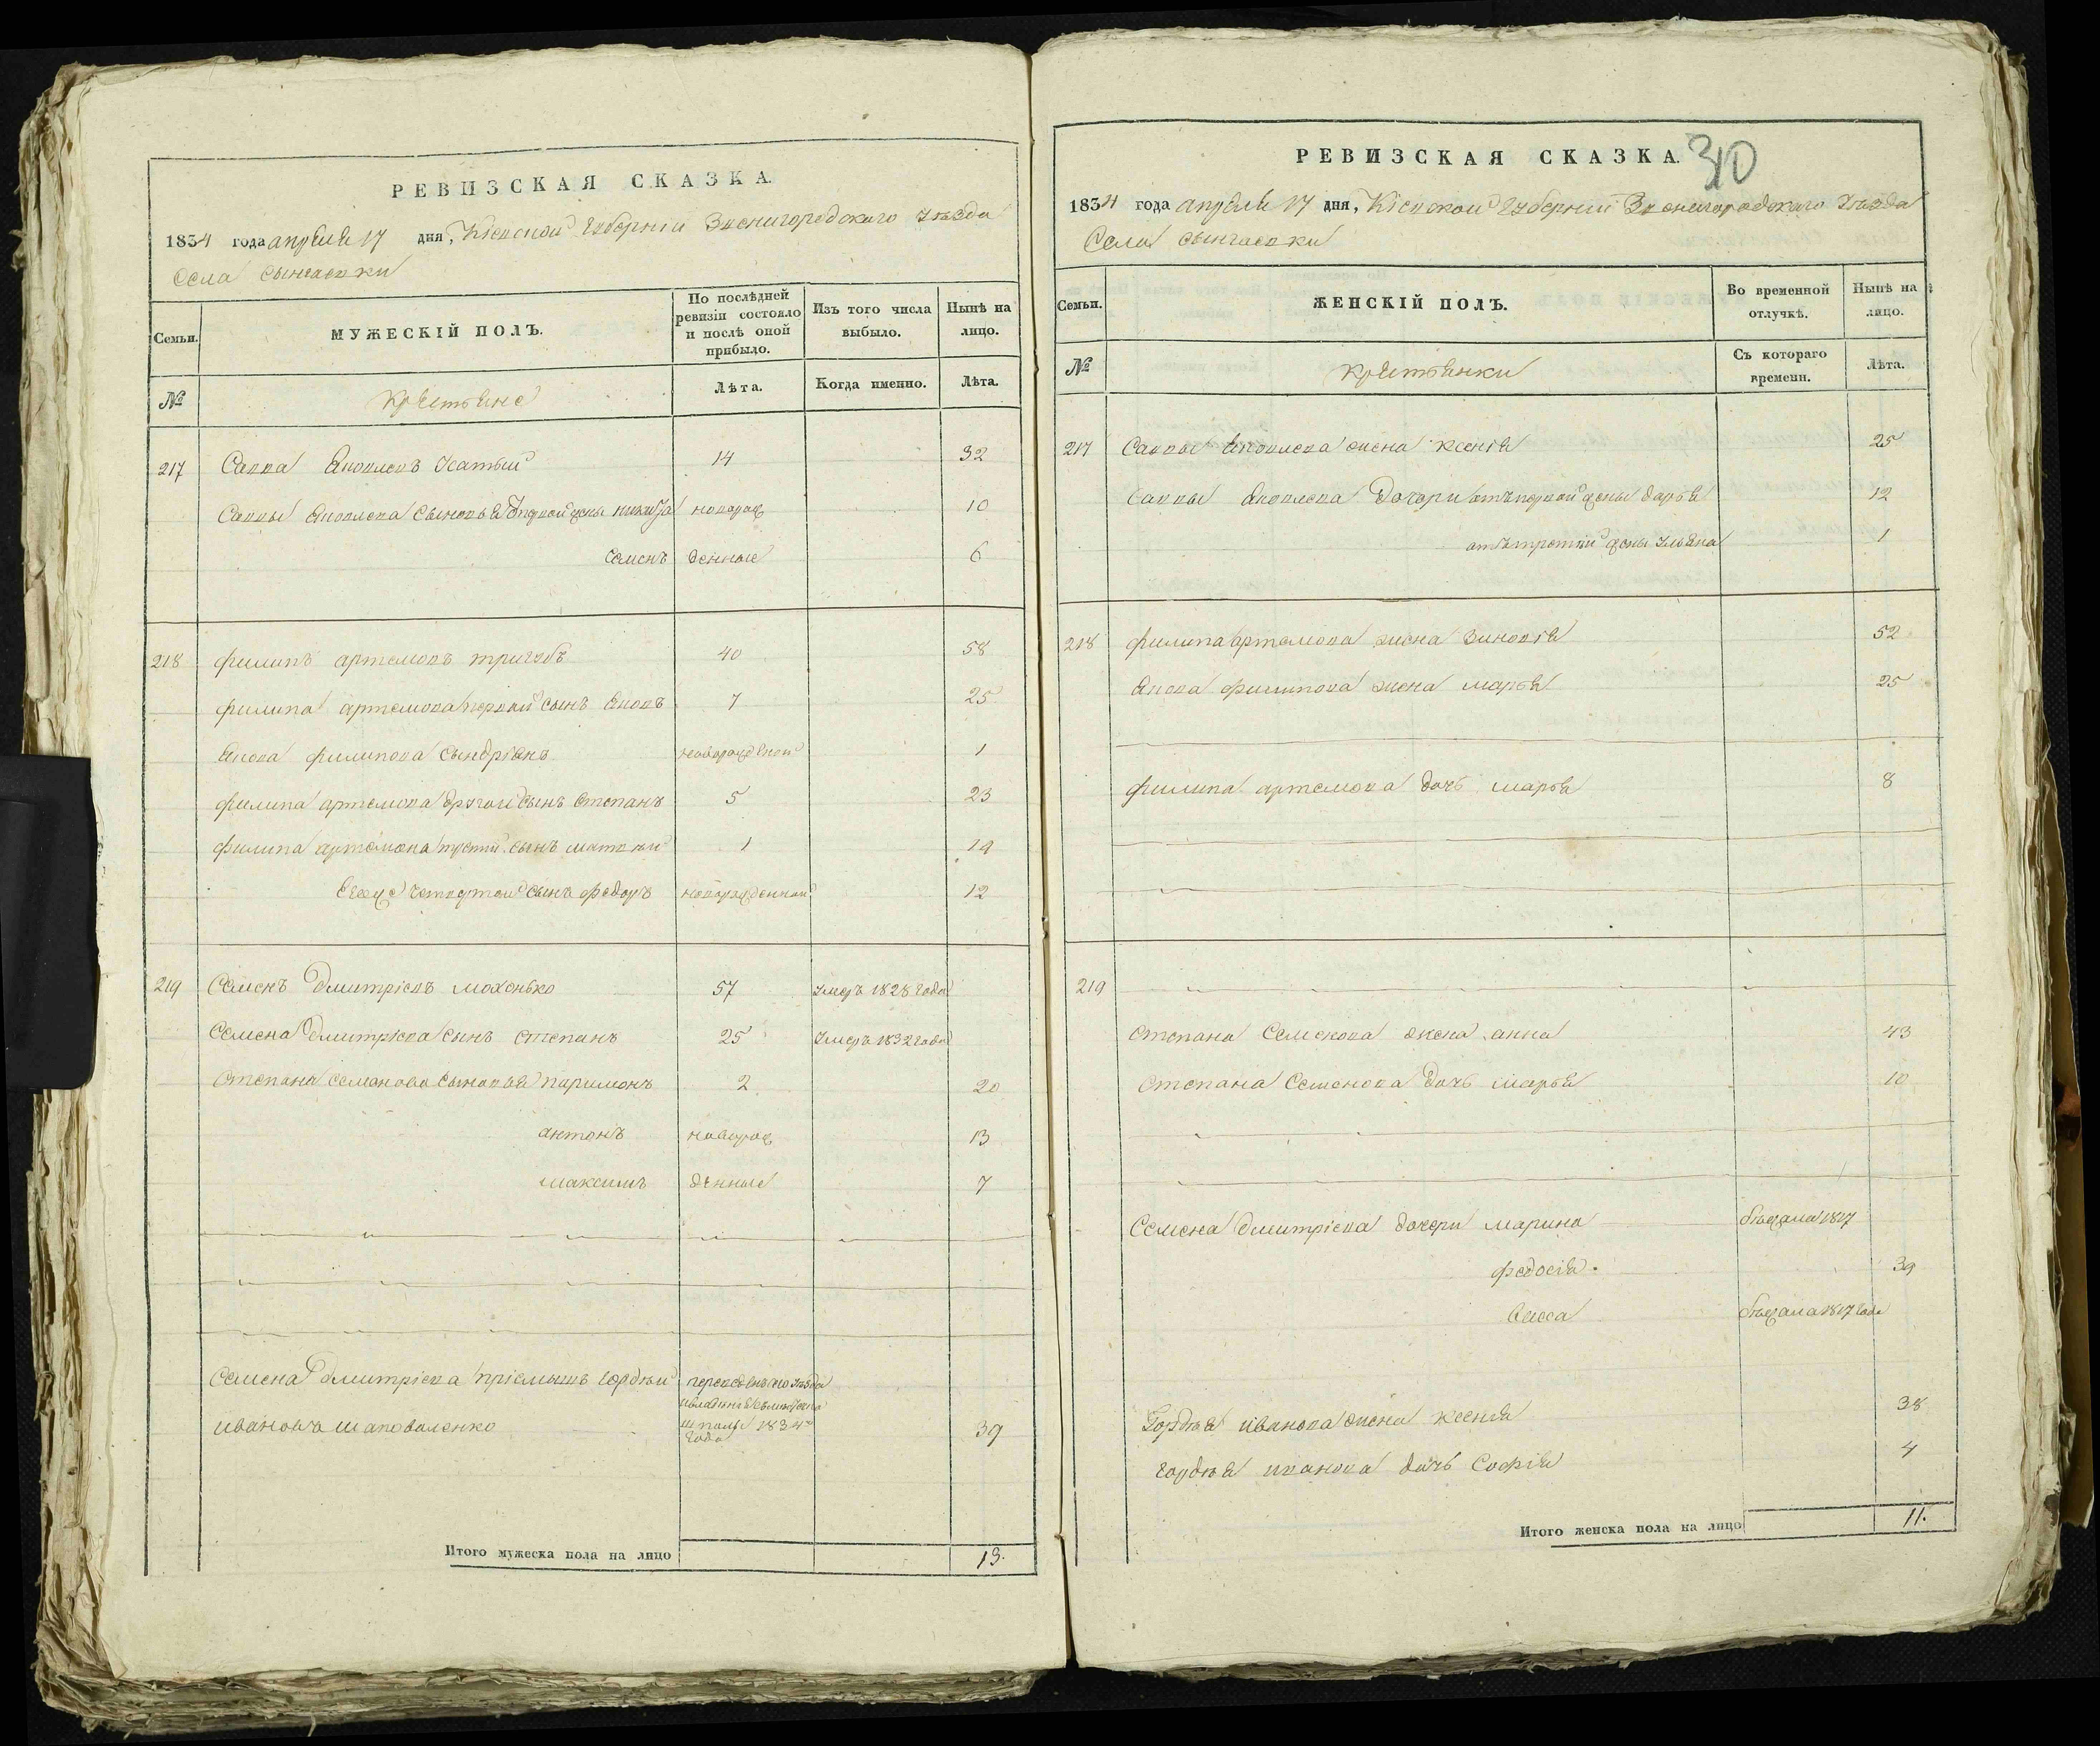 РЕВИЗСКАЯ СКАЗКА.
1834 года апреля 17 дня, Кіевской Губерніи Звенигородского уезда
Села
Семьи. МУЖЕСКІЙ ПОЛЪ. По послѣдней ревизіи состояло и послѣ оной прибыло. Изъ того числа выбыло. Нынѣ на лицо.
№ крестьяне Лѣта. Когда именно. Лѣта.
217 Савва Яковлевъ Усатый 14 32
Саввы Яковлева сыновья первой жены новорож 10
Семенъ денные 6
218 филипъ артемовъ тригубъ 40 58
филипа артемова первой сынъ Яковъ 7 25
Якова филипова сынъ новорожденой 1
филипа артемова другой сынъ степанъ 5 23
филипа артемова третій сынъ матвѣй 1 19
Егоже четвертой сынъ федоръ новорожденной 12
219 Семенъ Дмитріевъ мохонько 57 умеръ 1828 года
Семена Дмитріева сынъ степанъ 25 умеръ 1832 года
степана семенова сыновья паримонъ 2 20
антонъ новорож 13
максимъ денные 7
Семена Дмитріева пріемышъ Гордѣй
ивановъ шаповаленко 1834 года 39
Итого мужеска пола на лицо 13.
РЕВИЗСКАЯ СКАЗКА.
310
1834 года апреля 17 дня, Кіевской Губерніи Звенигородского уезда
Села
Семьи. ЖЕНСКІЙ ПОЛЪ. Во временной отлучкѣ. Нынѣ на лицо.
№ крестьянки Съ котораго времени. Лѣта.
217 Саввы Яковлева жена ксенія 25
Саввы Яковлева Дочери отъ первой жены дарья 12
отъ третій жены ульяна 1
218 филипа артемова жена зиновія 52
Якова филипова жена марья 25
филипа артемова дочь марья 8
219
степана Семенова жена анна 43
степана Семенова дочь марья 10
Семена Дмитріева дочери марина бѣжала 1817
федосія 39
бѣжала 1817 года
Гордѣя иванова жена ксенія 38
гордѣя иванова дочь Софія 4
Итого женска пола на лицо 11.